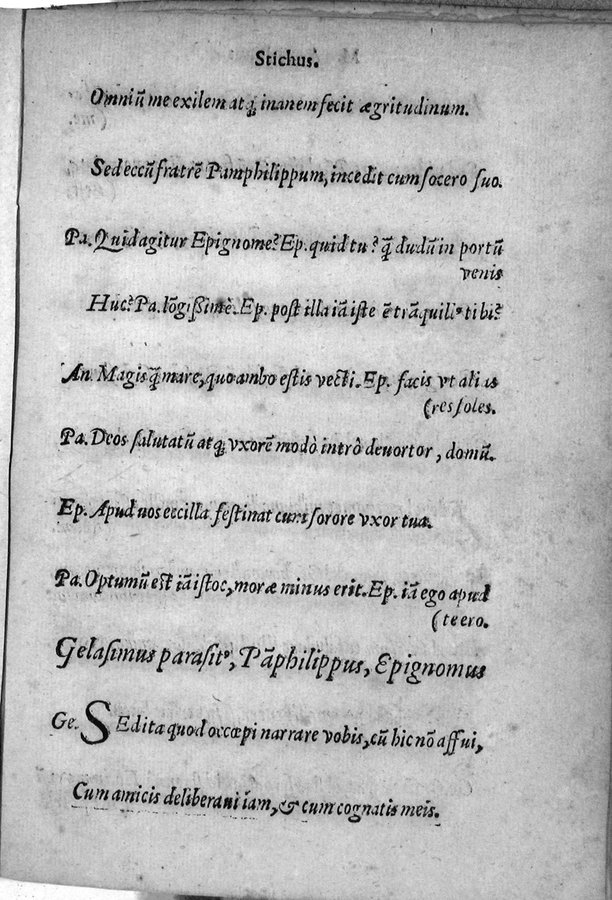 Stichus.
Omniũ me exilem atq; inanem fecit ægritudinum.
Sed eccũ fratrẽ Pamphilippum, incedit cum socero suo.
Pa. Quid agitur Epignome? Ep. quid tu? q̃ dudũ in portũ
venis
Huc? Pa. lõgißimè. Ep. post illa iã iste ẽ trãquill⁹ tibi?
An. Magis q̃ mare, quo ambo estis vecti. Ep. facis vt alias
(res soles.
Pa. Deos salutatũ atq; vxorẽ modò intrò deuortor, domũ.
Ep. Apud nos eccilla festinat cum sorore vxor tua.
Pa. Optumũ est iã istoc, moræ minus erit. Ep. iã ego apud
(te ero.
Gelasimus parasit⁹, Pãphilippus, Epignomus
Ge. SEd ita quod occœpi narrare vobis, cũ hic nõ affui,
Cum amicis deliberaui iam, & cum cognatis meis.